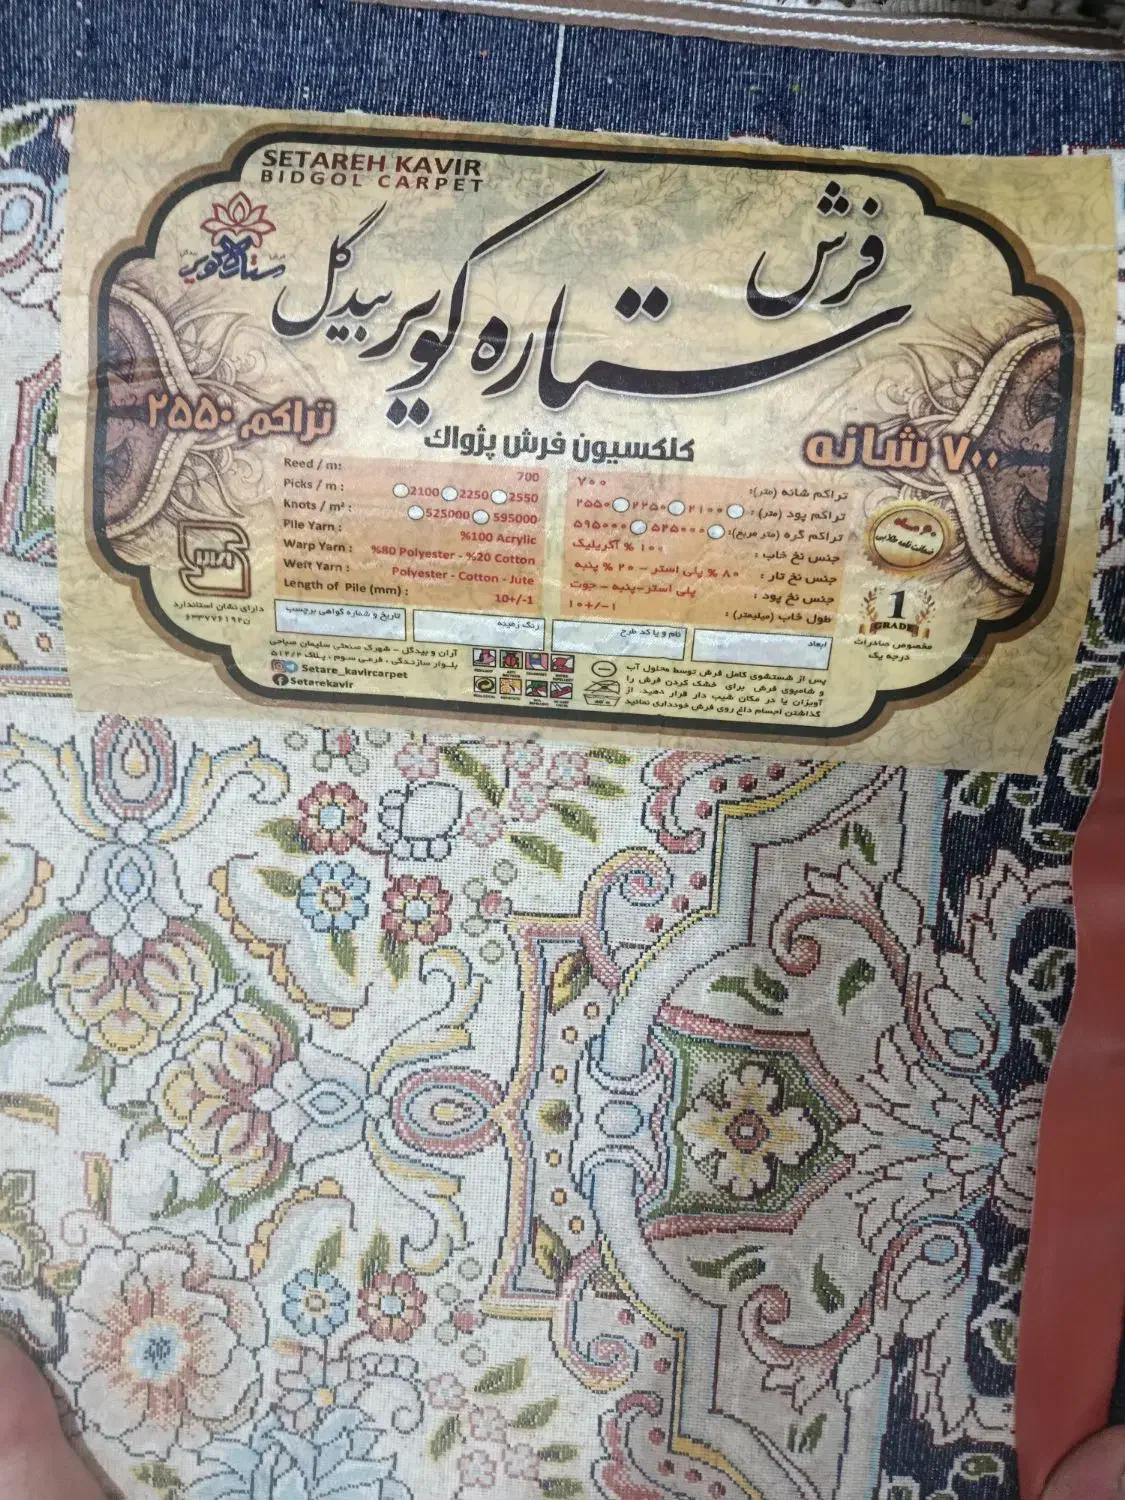 SETAREH KAVIR
BIDGOL CARPET
فرش
ستاره کویر بیدگل
ستاره کویر
۷۰۰ شانه
تراکم ۲۵۵۰
کلکسیون فرش پژواک
Reed / m: 700
Picks / m : 2100 2250 2550
Knots / m² : 525000 595000
Pile Yarn : %100 Acrylic
Warp Yarn : %80 Polyester - %20 Cotton
Weft Yarn : Polyester - Cotton - Jute
Length of Pile (mm) : 10+/-1
تراکم شانه (متر): ۷۰۰
تراکم پود (متر) : ۲۱۰۰ ۲۲۵۰ ۲۵۵۰
تراکم گره (متر مربع): ۵۲۵۰۰۰ ۵۹۵۰۰۰
جنس نخ خاب : ۱۰۰ % آکریلیک
جنس نخ تار : ۸۰ % پلی استر - ۲۰ % پنبه
جنس نخ پود : پلی استر-پنبه - جوت
طول خاب (میلیمتر) : ۱۰+/-۱
۶۰ ماه
ضمانت نامه طلایی
1
GRADE
مخصوص صادرات
درجه یک
دارای نشان استاندارد
ابعاد
نام و یا کد طرح
رنگ زمینه
تاریخ و شماره گواهی برچسب
پس از شستشوی کامل فرش توسط محلول آب
و شامپوی فرش برای خشک کردن فرش را
آویزان یا در مکان شیب دار قرار دهید. از
گذاشتن اجسام داغ روی فرش خودداری نمائید
آران و بیدگل - شهرک صنعتی سلیمان صباحی
بلوار سازندگی ، فرعی سوم ، پلاک ۵۱۴/۲
Setare_kavircarpet
Setarekavir